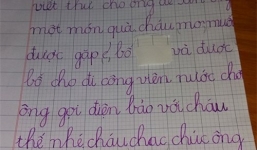 viết thư cho ông để
một món quà. cháu mong muốn
được gặp bố và được
bố cho đi công viên nước cho
ông gọi điện bảo với cháu
thế nhé, cháu chúc ông